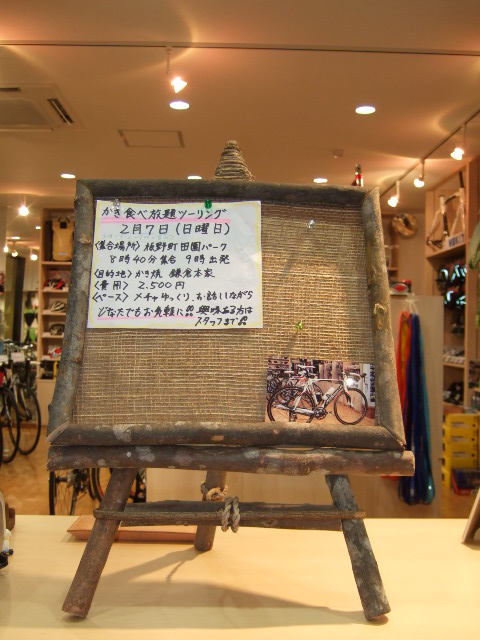 かき食べ放題ツーリング
2月7日(日曜日)
〈集合場所〉板野町田園パーク
8時40分集合 9時出発
〈目的地〉かき焼 鎌倉本家
〈費用〉2.500円
〈ペース〉メチャゆっくり、お話しながら
どなたでもお気軽に!! 興味ある方は
スタッフまで!!